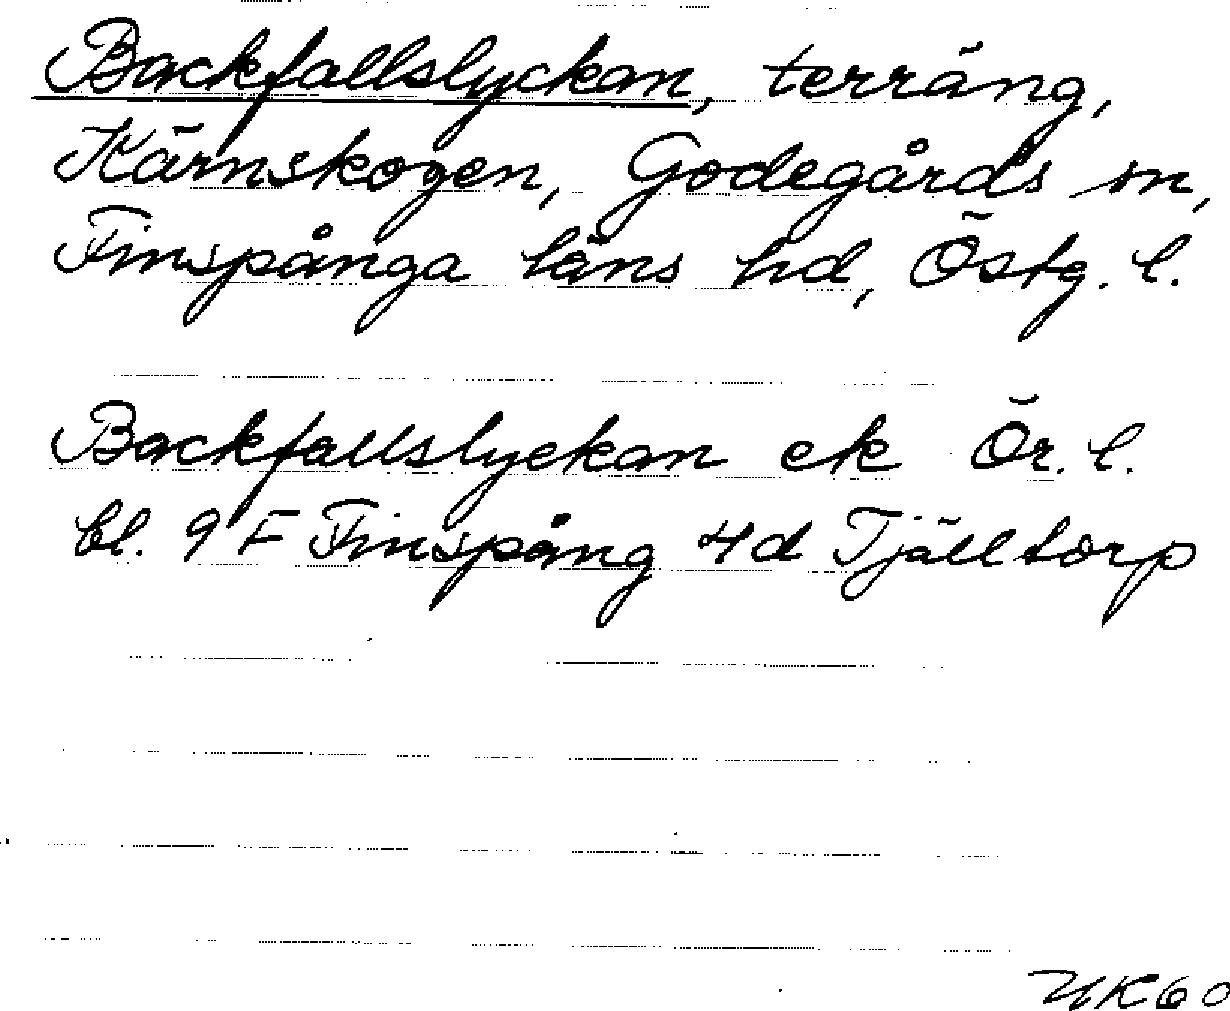 Backfallslyckan, terräng,
Kärnskogen, Godegårds sn,
Finspånga läns hd, Östg. l.
Backfallslyckan ek Ör. l.
bl. 9 F Finspång 4d Tjälltorp
UK60